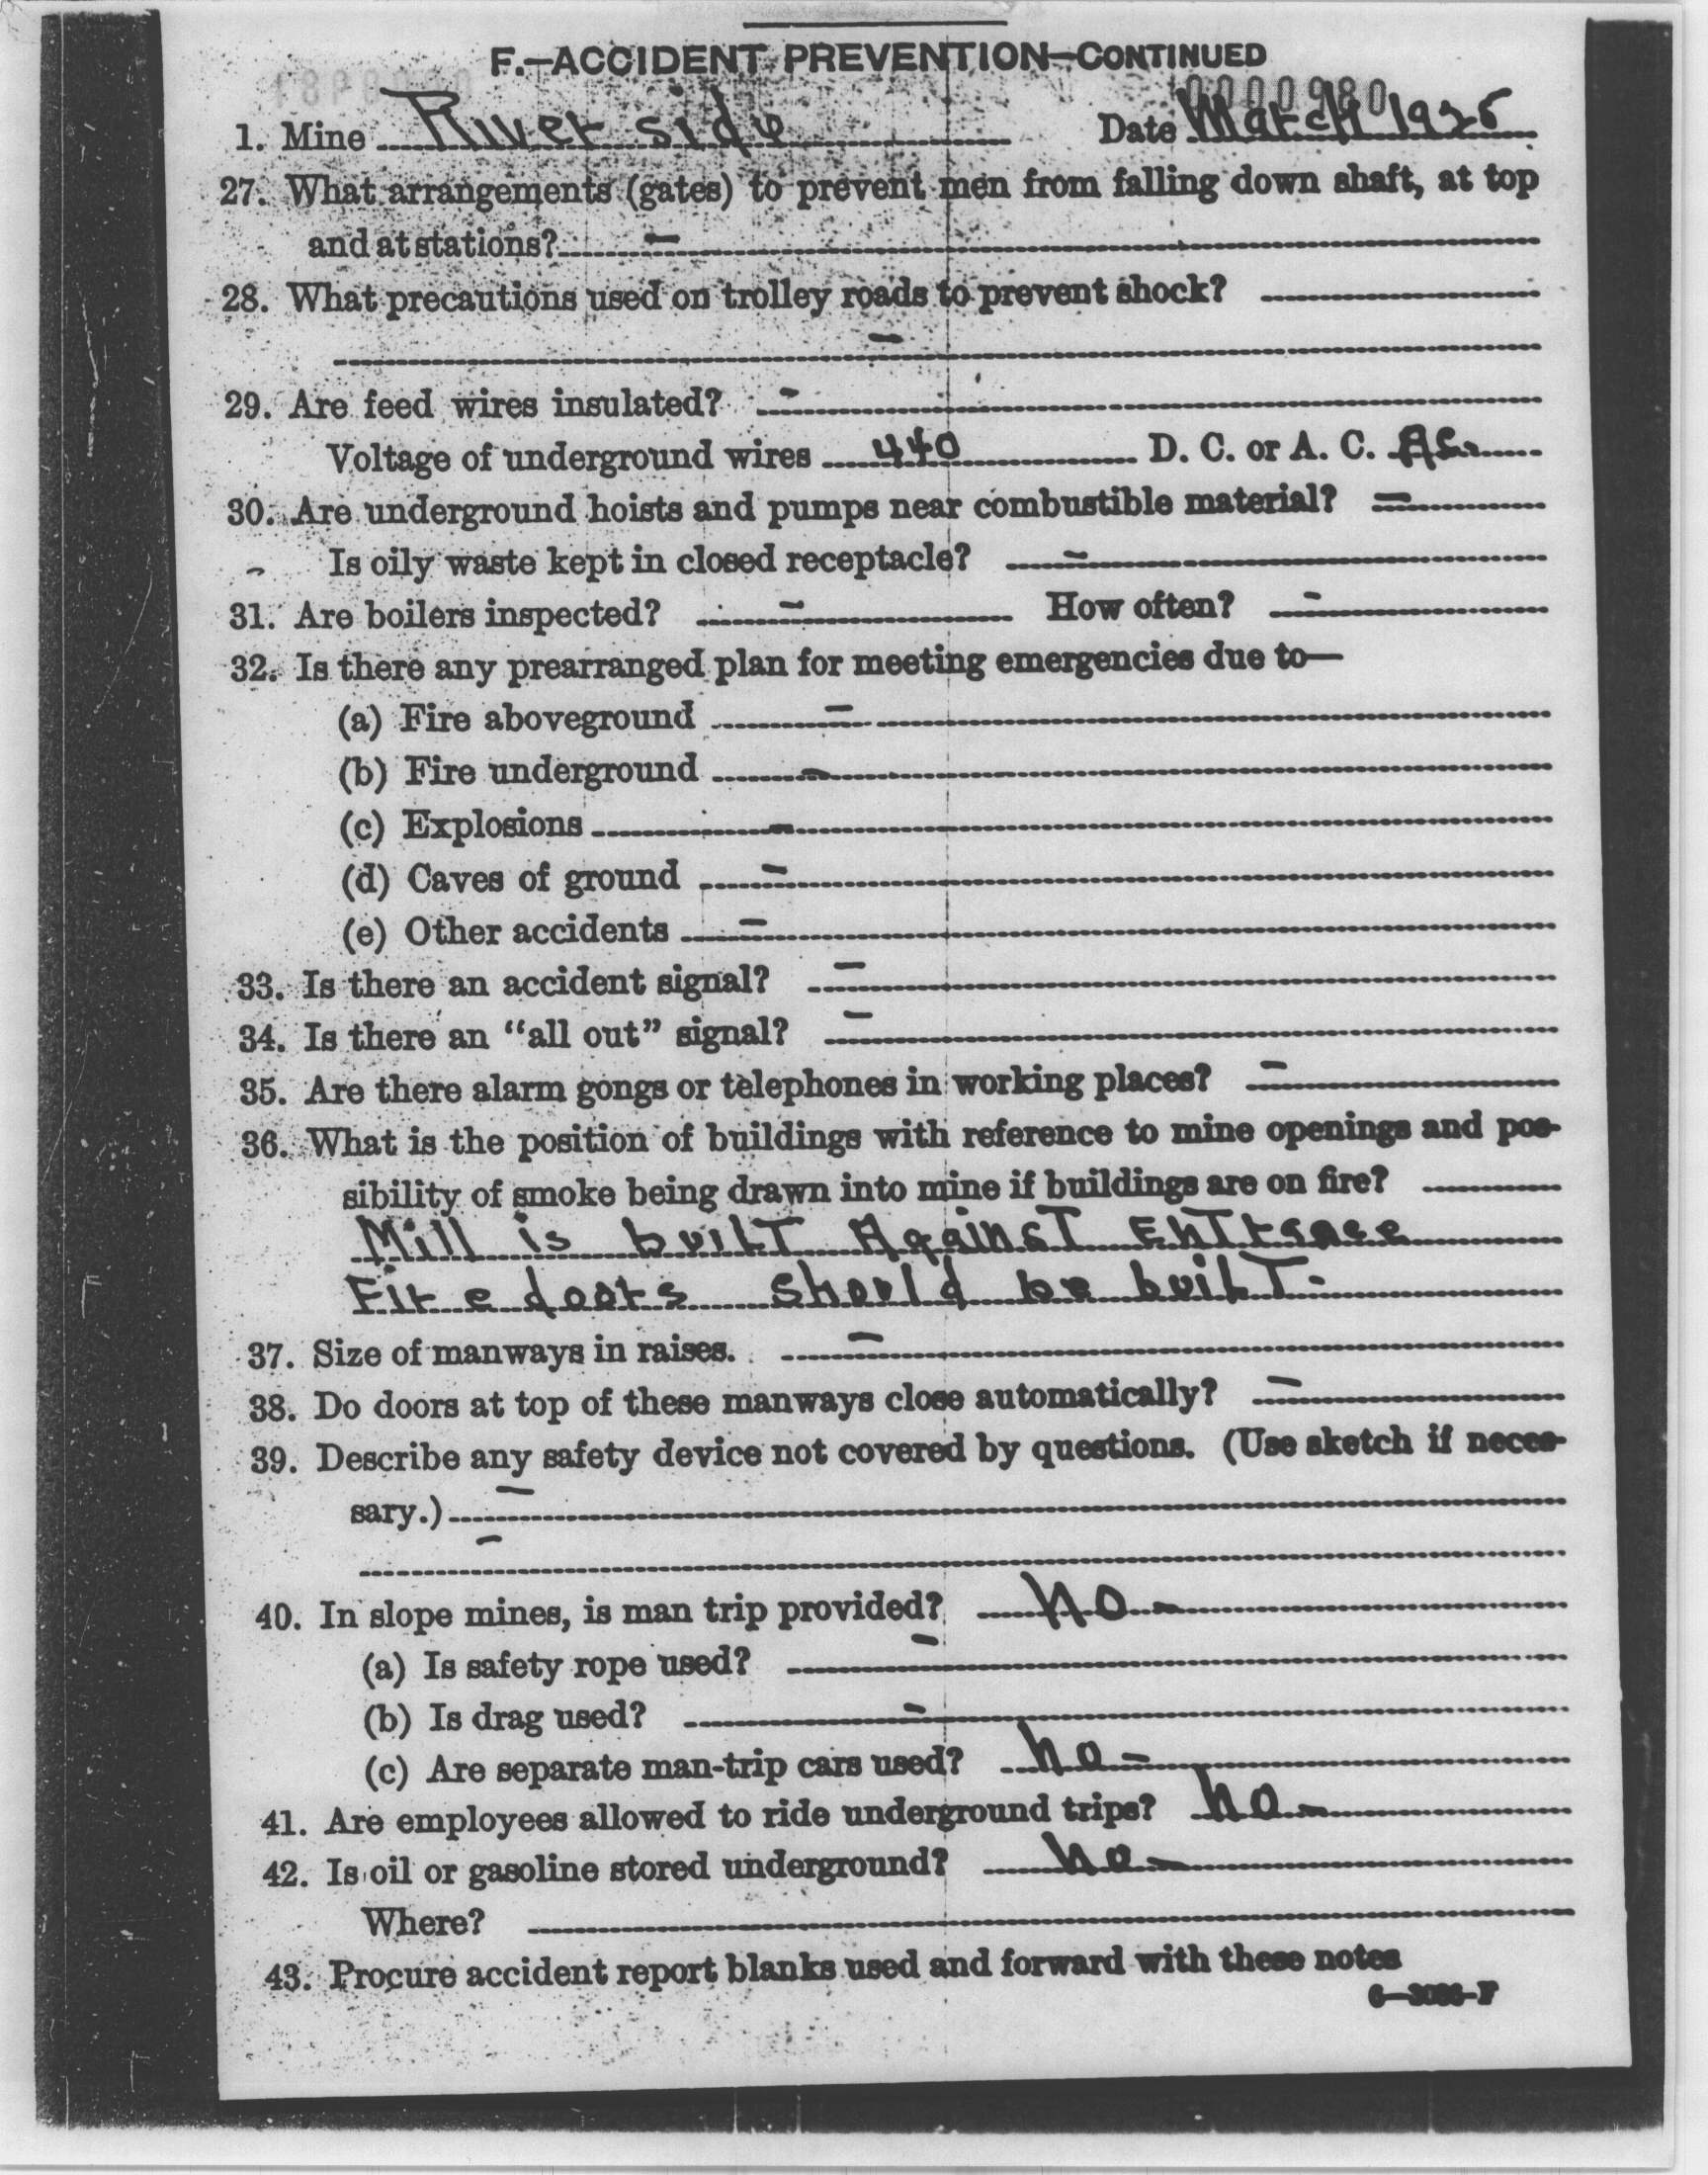 F.—ACCIDENT PREVENTION—CONTINUED
0000980
1. Mine River side Date March 1925
27. What arrangements (gates) to prevent men from falling down shaft, at top
and at stations? -
28. What precautions used on trolley roads to prevent shock?
-
29. Are feed wires insulated? -
Voltage of underground wires 440 D. C. or A. C. AC.
30. Are underground hoists and pumps near combustible material? -
- Is oily waste kept in closed receptacle? -
31. Are boilers inspected? - How often? -
32. Is there any prearranged plan for meeting emergencies due to—
(a) Fire aboveground -
(b) Fire underground -
(c) Explosions -
(d) Caves of ground -
(e) Other accidents -
33. Is there an accident signal? -
34. Is there an “all out” signal? -
35. Are there alarm gongs or telephones in working places? -
36. What is the position of buildings with reference to mine openings and pos-
sibility of smoke being drawn into mine if buildings are on fire?
Mill is built Against Entrance
Fire doors should be built-
37. Size of manways in raises. -
38. Do doors at top of these manways close automatically? -
39. Describe any safety device not covered by questions. (Use sketch if neces-
sary.) -
-
40. In slope mines, is man trip provided? No -
(a) Is safety rope used? -
(b) Is drag used? -
(c) Are separate man-trip cars used? No -
41. Are employees allowed to ride underground trips? No -
42. Is oil or gasoline stored underground? No -
Where?
43. Procure accident report blanks used and forward with these notes